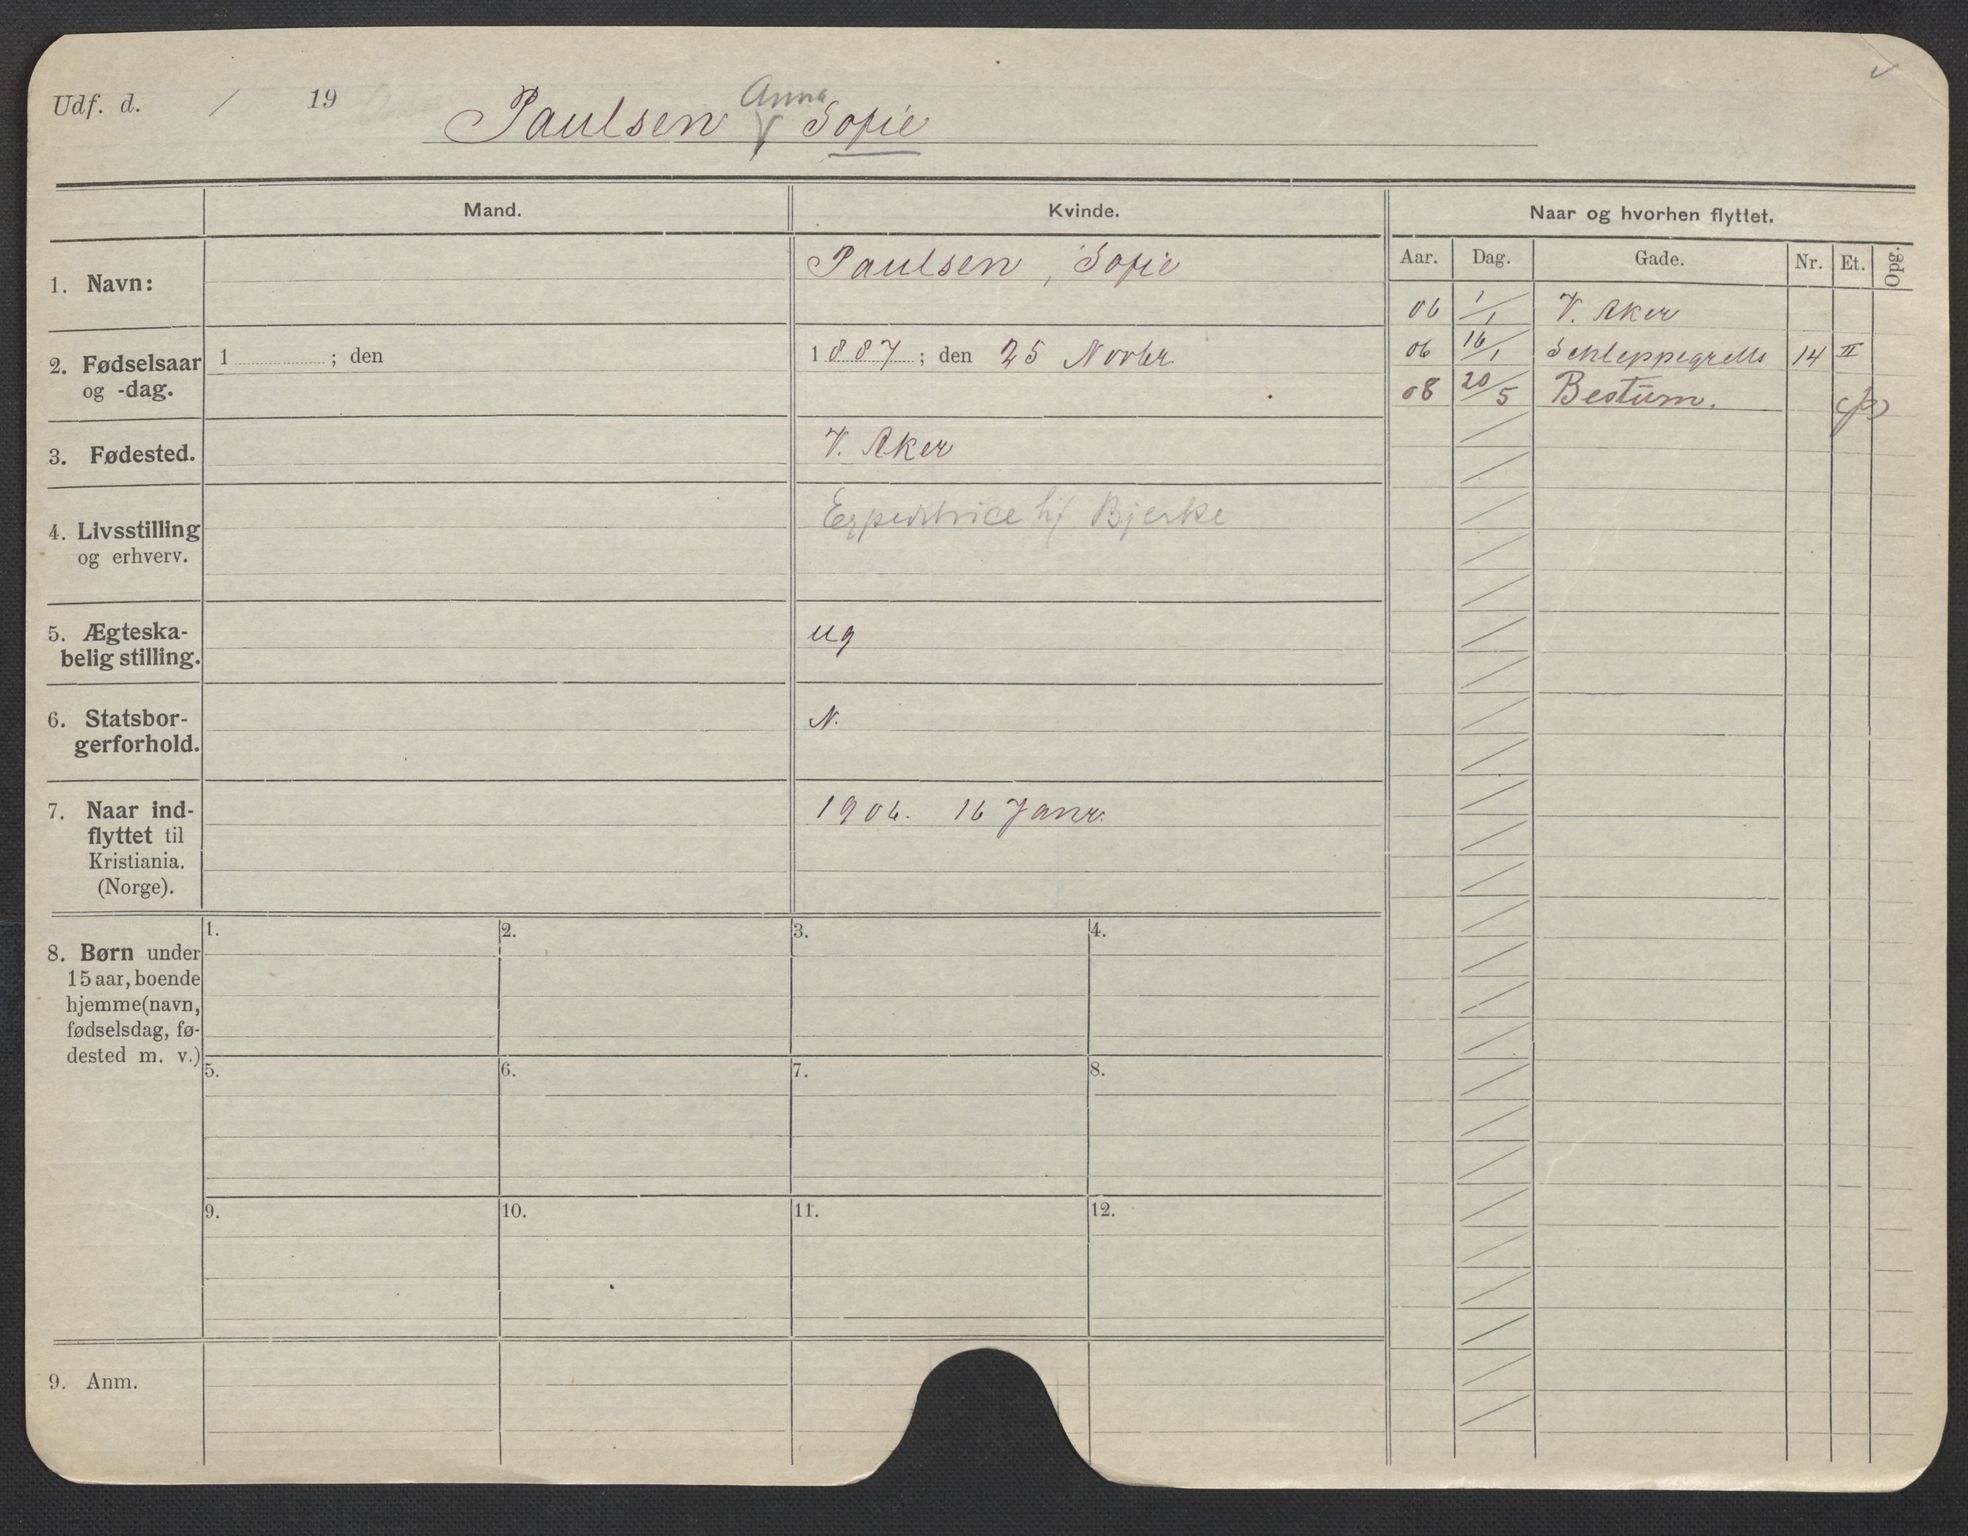 Udf. d. / 19
Anna
Paulsen Sofie
Mand.
Kvinde.
Naar og hvorhen flyttet.
Aar. Dag. Gade. Nr. Et. Opg.
1. Navn:
Paulsen, Sofie
06 1/1 V. Aker
2. Fødselsaar
og -dag.
1 ; den
1887 ; den 25 Novbr
06 16/1 Schleppegrells 14 II
08 20/5 Bestum.
3. Fødested.
V. Aker
4. Livsstilling
og erhverv.
Expeditrice h/ Bjerke
5. Ægteska-
belig stilling.
ug
6. Statsbor-
gerforhold.
N.
7. Naar ind-
flyttet til
Kristiania.
(Norge).
1906. 16 Janr.
8. Børn under
15 aar, boende
hjemme (navn,
fødselsdag, fø-
dested m. v.)
1. 2. 3. 4.
5. 6. 7. 8.
9. 10. 11. 12.
9. Anm.